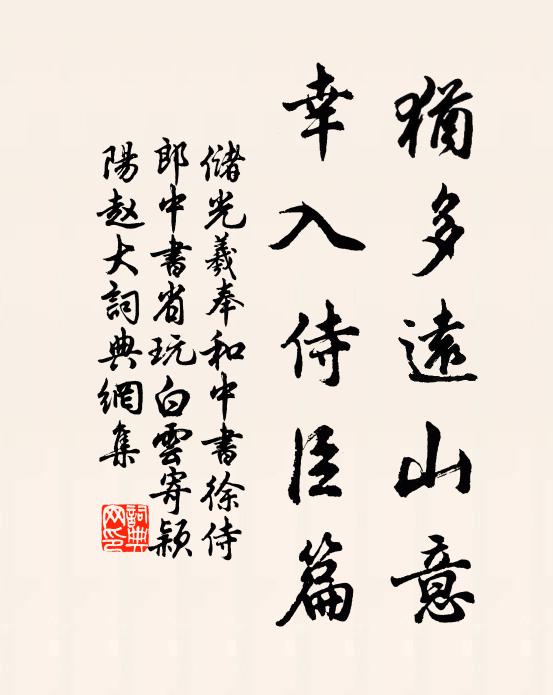 猶多遠山意
幸入侍臣篇
儲光羲奉和中書徐侍
郎中書省玩白雲寄潁
陽趙大詞典網集
詞典網印